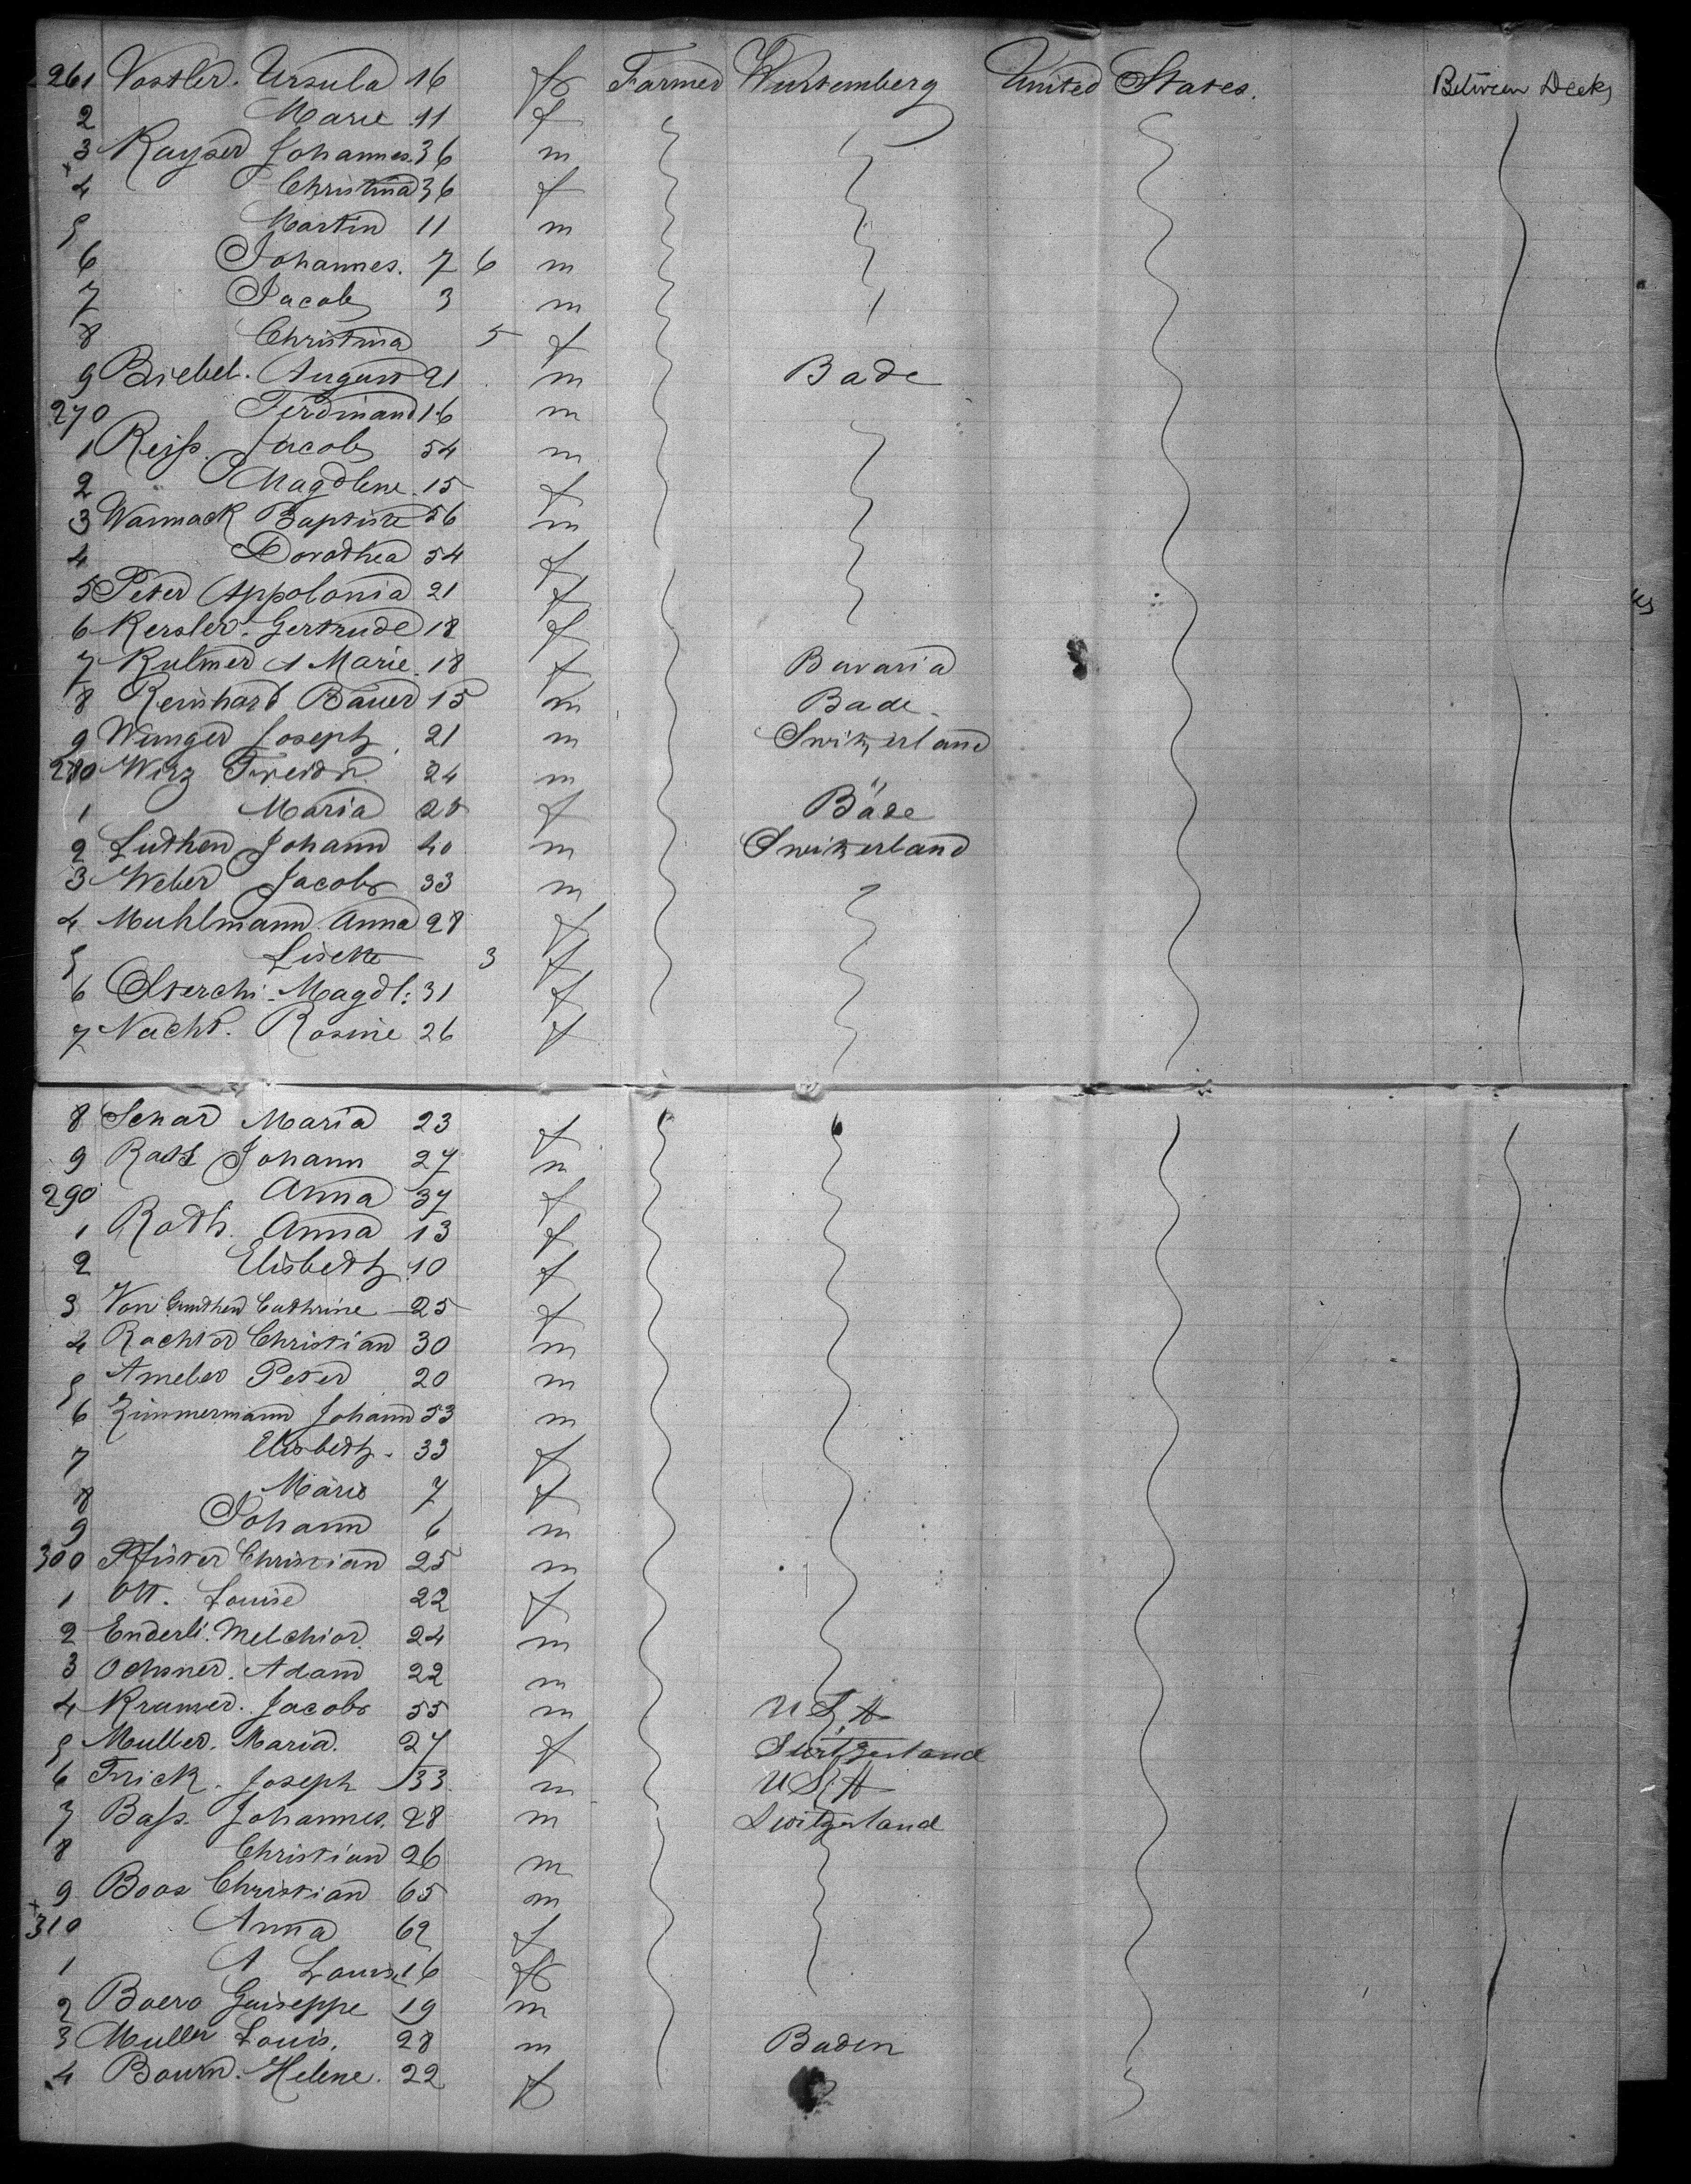 261 Vostler. Ursula 16 f Farmer Wurtemberg United States. Between Decks
2 Marie 11 f
3 Kayser Johannes. 36 m
4 Christina 36 f
5 Martin 11 m
6 Johannes. 7 6 m
7 Jacob 3 m
8 Christina 5 f
9 Biebel. August 21 m Bade
270 Ferdinand 16 m
1 Reiss. Jacob 54 m
2 Magdlene. 15 f
3 Warmack Baptiste 56 m
4 Dorothea 54 f
5 Peter Appolonia 21 f
6 Kersler. Gertrude 18 f
7 Kulmer A Marie. 18 f Bavaria
8 Reinhard Bauer 15 m Bade
9 Wunger Joseph 21 m Switzerland
280 Wirz 24 m "
1 Maria 28 f Bade
2 Luthen Johann 40 m Switzerland
3 Weber Jacob 33 m
4 Muhlmann. Anna 28 f
5 Lisette 3 f
6 Sterchi. Magdl: 31 f
7 Nacht. Rosine 26 f
8 Schar Maria 23 f
9 Johann 27 m
290 Anna 37 f
1 Roth. Anna 13 f
2 Elisbeth 10 f
3 Von Gunthen Cathrine 25 f
4 Christian 30 m
5 Peter 20 m
6 Zimmermann Johann 53 m
7 Elisbeth. 33 f
8 Marie 7 f
9 Johann 6 m
300 Pfister Christian 25 m
1 Ott. Louise 22 f
2 Enderli. Melchior. 24 m
3 Ochsner. Adam 22 m
4 Kramer. Jacob 55 m U S A
5 Muller. Maria. 27 f Switzerland
6 Frick. Joseph 33 m U S A
7 Bass. Johannes. 28 m Switzerland
8 Christian 26 m
9 Boos Christian 65 m
310 Anna 62 f
1 A Louise 16 f
2 Boero Guiseppe 19 m
3 Muller Louis. 28 m Baden
4 Bourn. Helene. 22 f